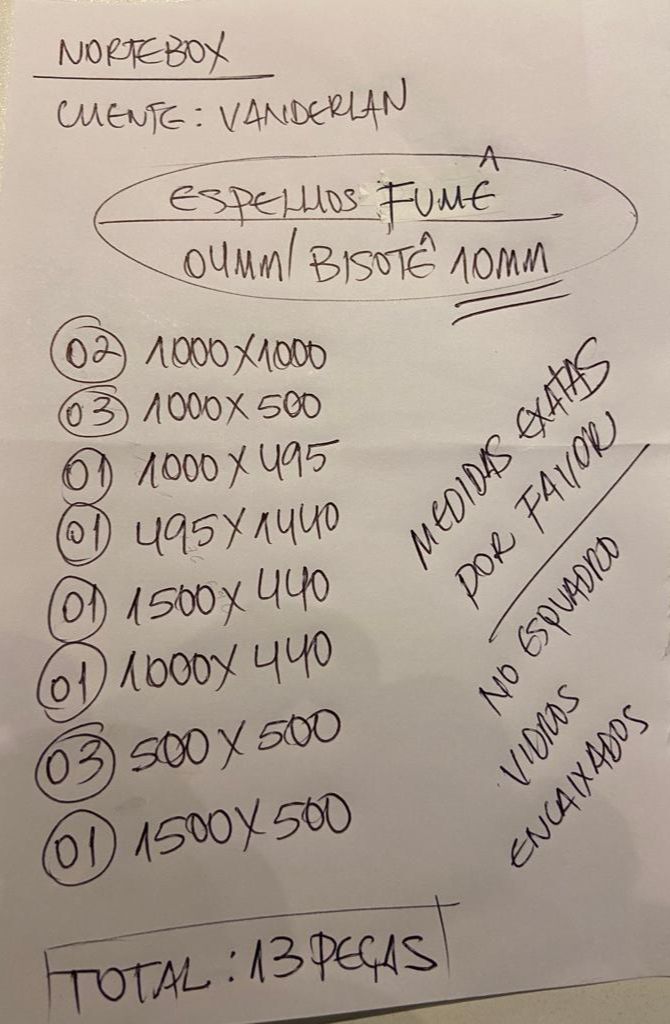 NORTEBOX
CLIENTE: VANDERLAN
ESPELHOS FUMÊ
04MM/ BISOTÊ 10MM
02 1000X1000
03 1000X500
01 1000X495
01 495X1440
01 1500X440
01 1000X440
03 500X500
01 1500X500
MEDIDAS EXATAS
POR FAVOR
NO ESQUADRO
VIDROS
ENCAIXADOS
TOTAL: 13 PEÇAS